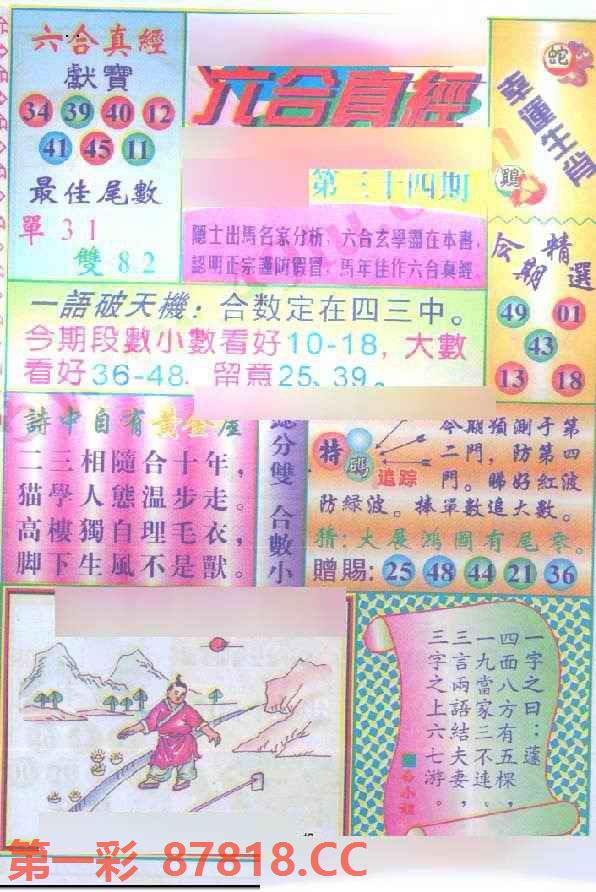 六合真經
獻寶
34 39 40 12
41 45 11
最佳尾數
單31
雙82
六合真經
第三十四期
隱士出馬名家分析，六合玄學盡在本書，
認明正宗謹防假冒，馬年佳作六合真經
蛇
幸運生肖
鷄
今期精選
49 01
43
13 18
一語破天機：合数定在四三中。
今期段數小數看好10-18，大數
看好36-48，留意25、39。
詩中自有黃金屋
二三相隨合十年，
猫學人態溫步走。
高樓獨自理毛衣，
脚下生風不是獸。
分雙 合數小
特碼追踪
今期預測于第
二門，防第四
門。睇好紅波
防緑波。捧單數追大數。
猜：大展鴻圖有尾零。
贈賜：25 48 44 21 36
一字之曰：蓬
四面八方有五棵，
一九當家三不連。
三言兩語結夫妻，
三字之上六七游。
第一彩 87818.CC